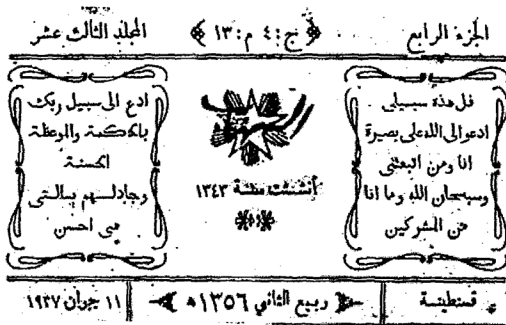 الجزء الرابع
﴿ ج : ٤ م : ١٣ ﴾
المجلد الثالث عشر
قل هذه سبيلي
ادعو الى الله على بصيرة
انا ومن اتبعني
وسبحان الله وما انا
من المشركين
الشهاب
أنشئت سنة ١٣٤٣
ادع الى سبيل ربك
بالحكمة والموعظة
الحسنة
وجادلهم بالتي
هي احسن
قسنطينة
ربيع الثاني ١٣٥٦ه
١١ جوان ١٩٣٧